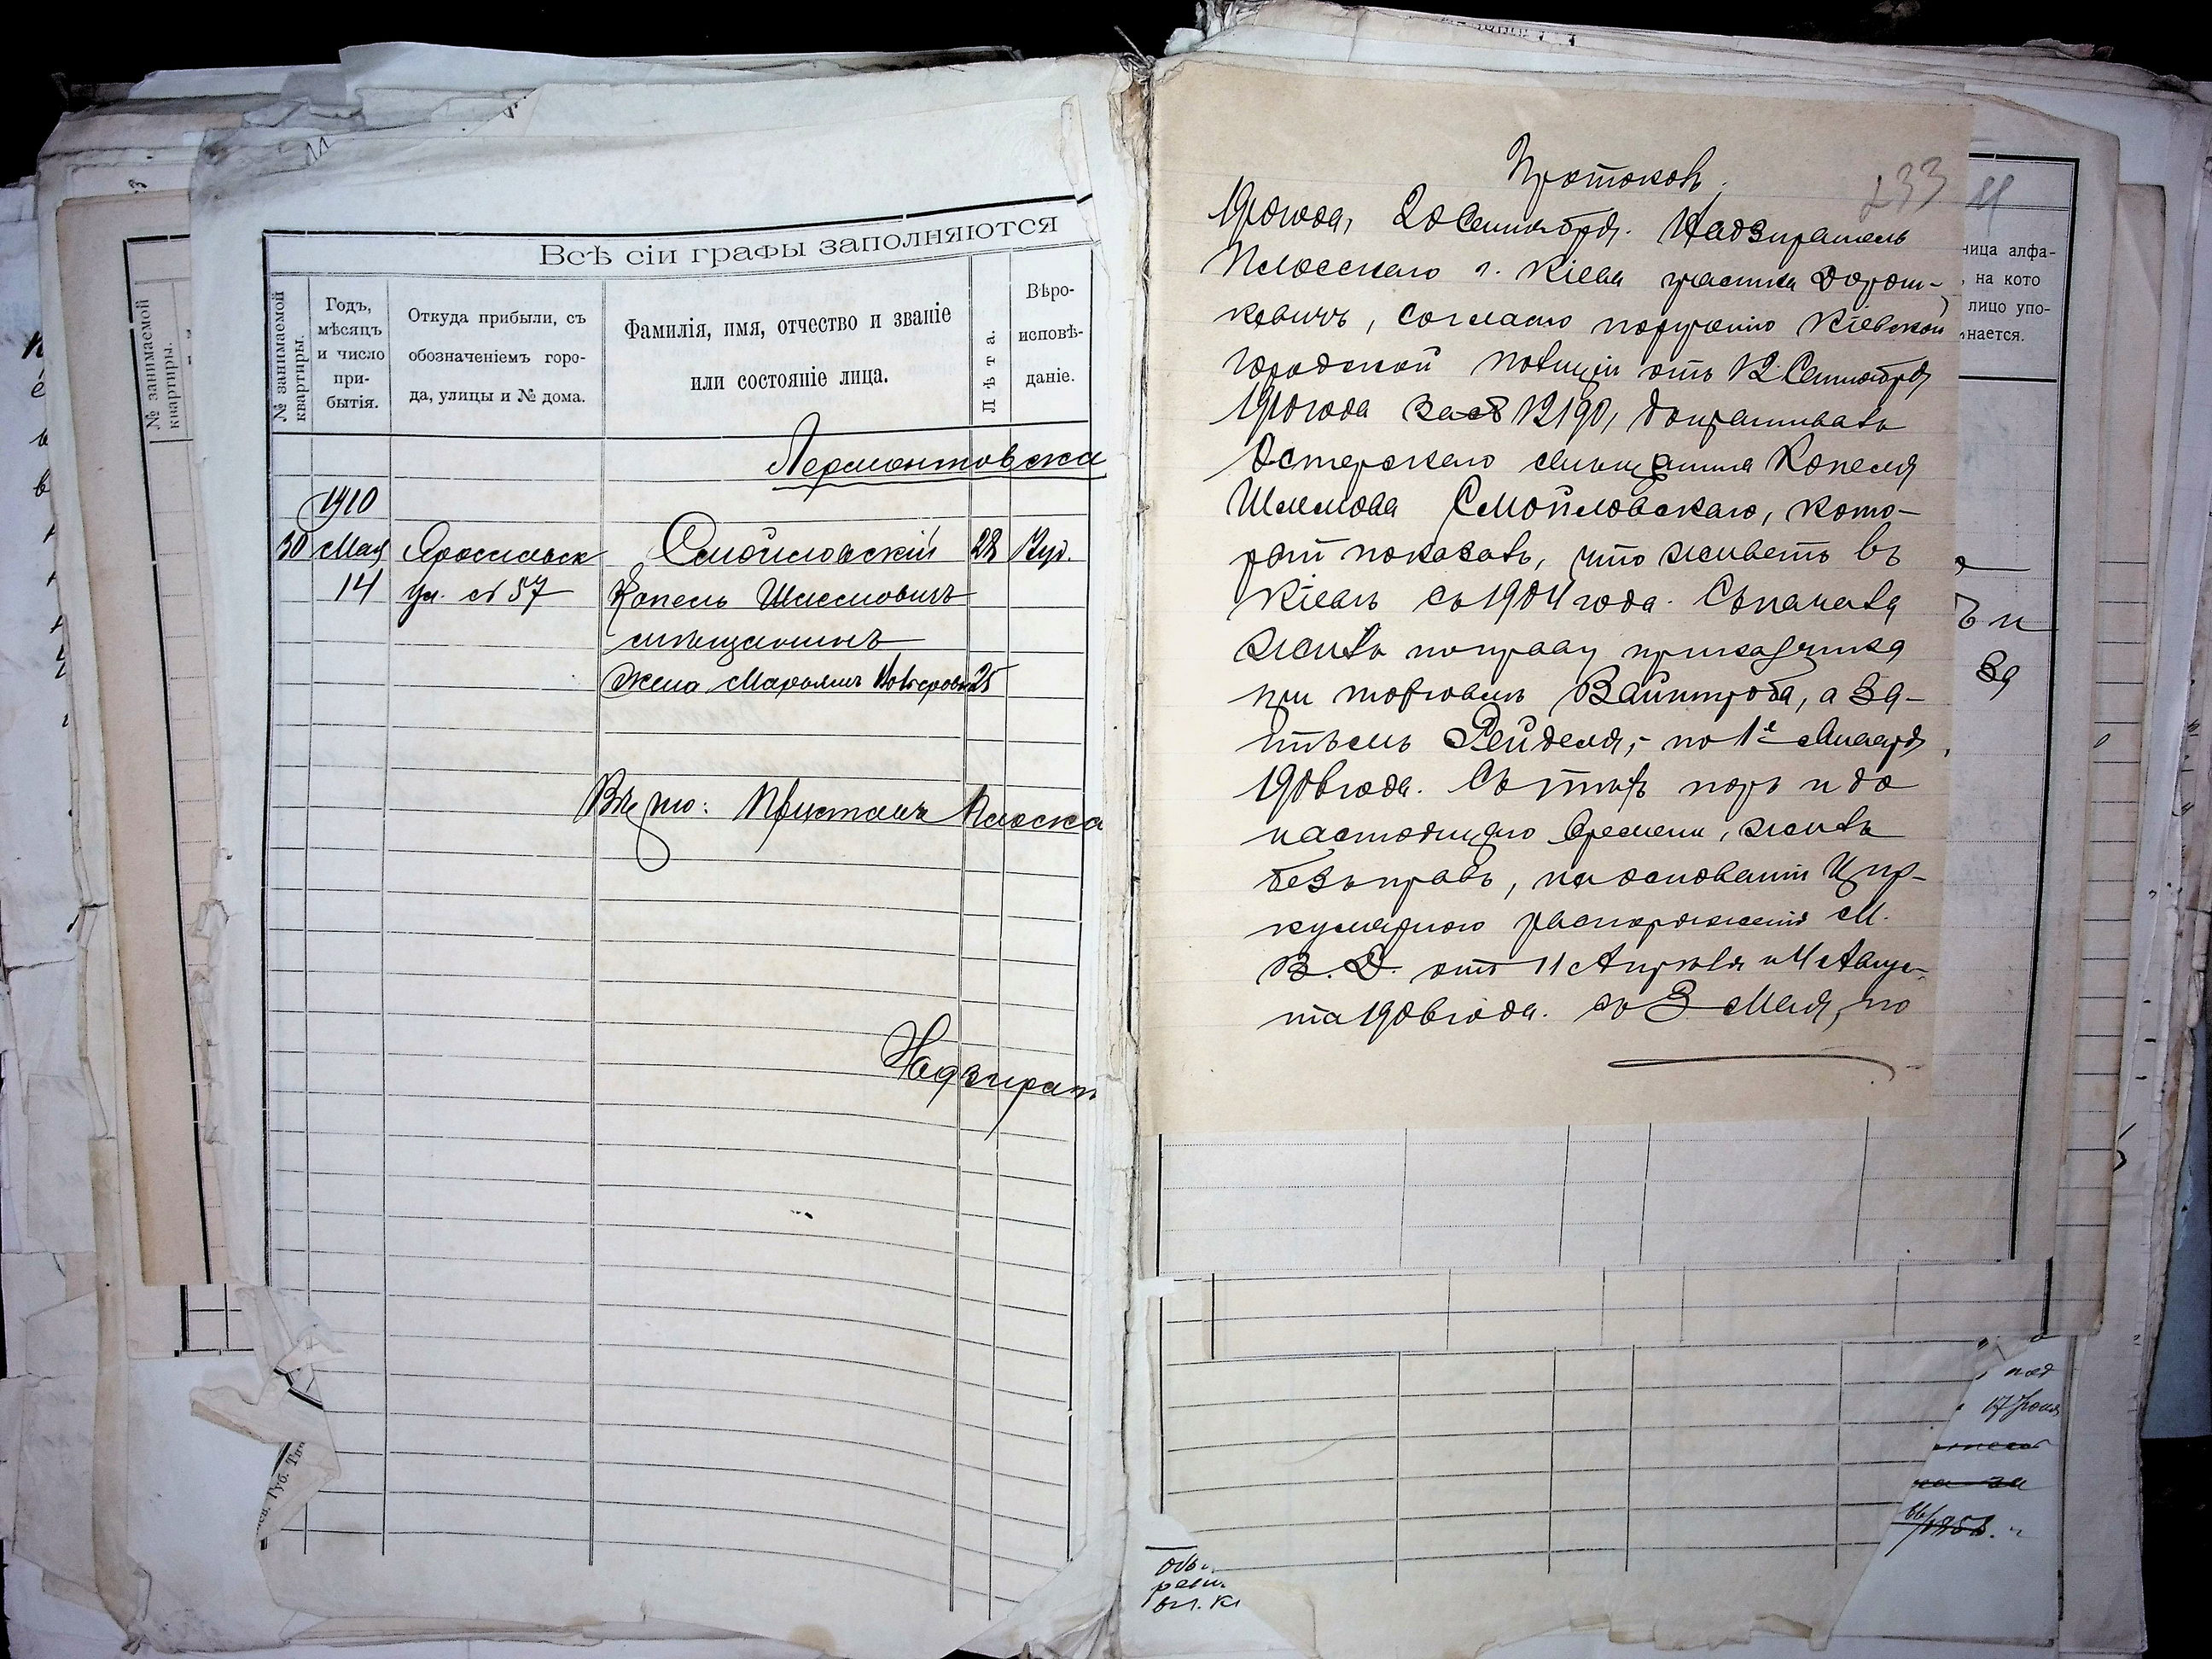 Всѣ сіи графы заполняются
№ занимаемой квартиры.
Годъ, мѣсяцъ и число при-бытія.
Откуда прибыли, съ обозначеніемъ горо-да, улицы и № дома.
Фамилія, имя, отчество и званіе или состояніе лица.
Лѣта.
Вѣро-исповѣ-даніе.
Лермонтовска
1910
30 Мая Ярославск Смойловскій 28 Іуд.
14 ул. № 57 Копель Шлемовичъ
мѣщанинъ
жена Марьямъ 25
Вѣрно: Приставъ Плоска
Надзират
№ занимаемой квартиры.
Протоколъ.
233
1910 года, 20 Сентября. Надзиратель
Плосскаго г. Кіева участка Дорош-
кевичъ, согласно порученію Кіевской
городской полиціи отъ 12 Сентября
1910 года за № 12190, допрашивалъ
Остерскаго мѣщанина Копеля
Шлемова Смойловскаго, кото-
рый показалъ, что живетъ въ
Кіевѣ съ 1904 года. Сначала
жилъ по праву приказчика
при торговлѣ Вайнтроба, а за-
тѣмъ Рейделя, - по 1е Января
1906 года. Съ тѣхъ поръ и до
настоящаго времени, жилъ
безъ правъ, на основаніи Цир-
кулярнаго распоряженія М.
В. Д. отъ 11 Апрѣля и 4 Авгус-
та 1906 года. съ 3 Мая, по
ница алфа-
, на кото
лицо упо-
нается.
ъ и
за
под
17 Іюня